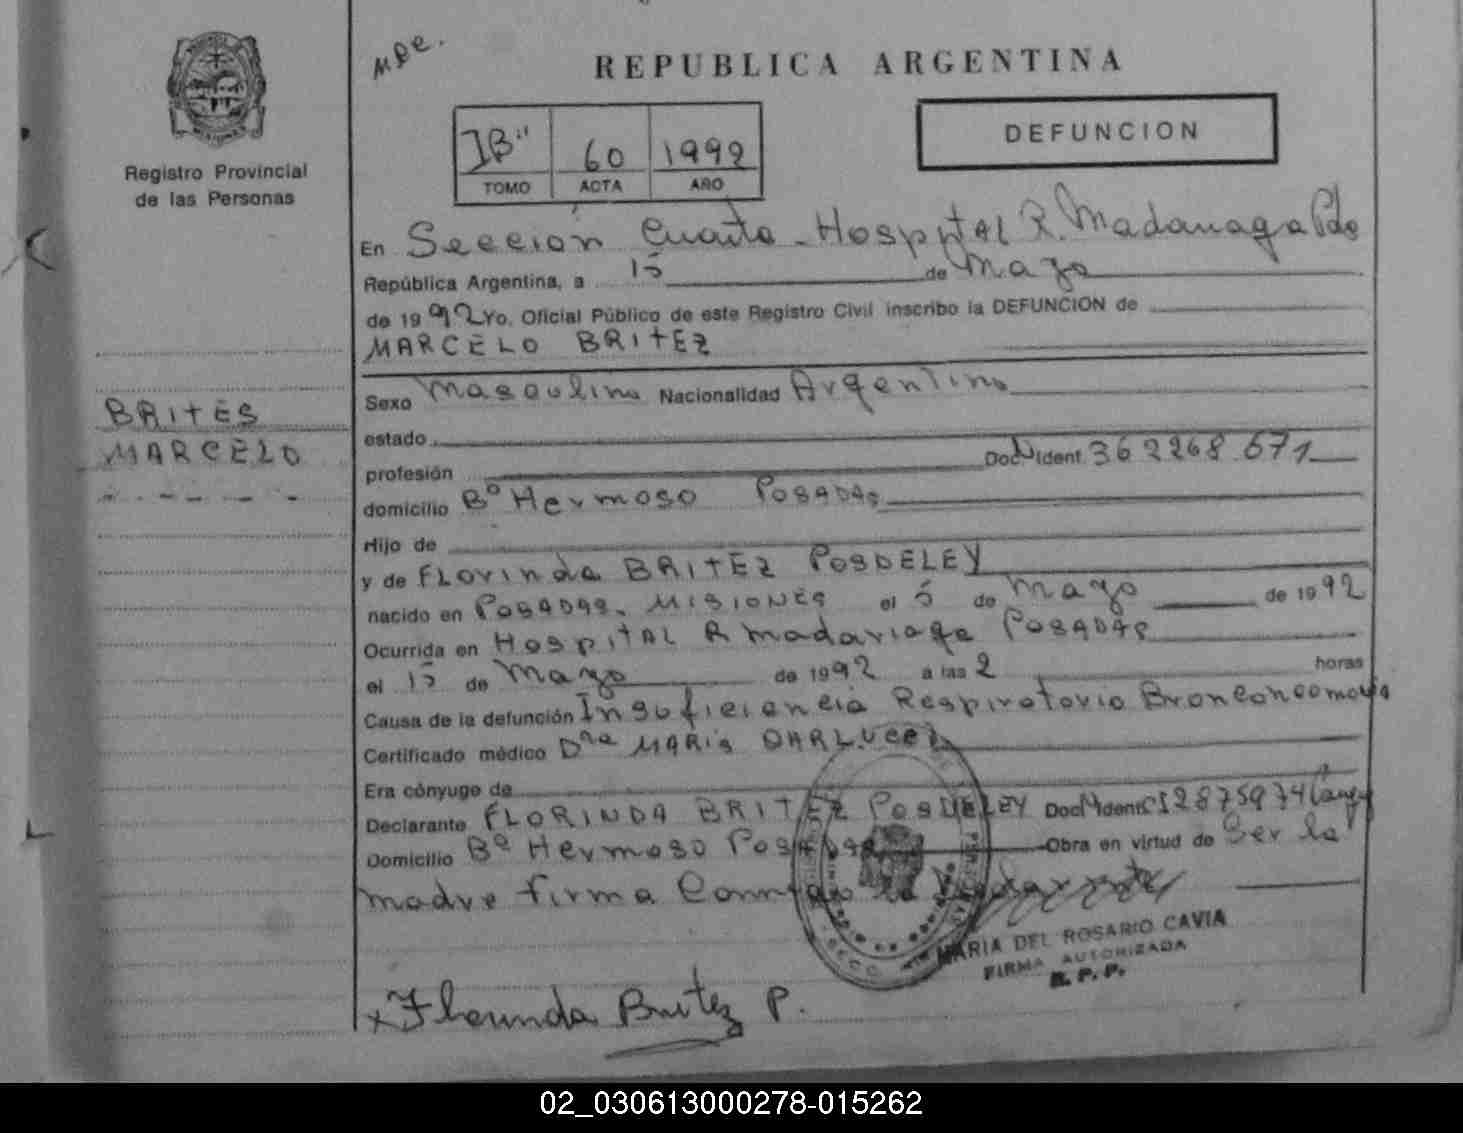 REPUBLICA ARGENTINA
Registro Provincial
de las Personas
60 1992
TOMO ACTA AÑO
DEFUNCION
En Sección Cuarta - Hospital R. Madariaga Pdo
República Argentina, a 15 de Mayo
de 1992 Yo, Oficial Público de este Registro Civil inscribo la DEFUNCION de
MARCELO BRITEZ
BRITES
MARCELO
Sexo Masculino Nacionalidad Argentino
estado
profesión Doc. Ident. 362268.671
domicilio Bº Hermoso POSADAS
Hijo de
y de FLORINDA BRITEZ POSDELEY
nacido en POSADAS. MISIONES el 5 de Mayo de 1992
Ocurrida en HOSPITAL R Madariaga POSADAS
el 15 de Mayo de 1992 a las 2 horas
Causa de la defunción Insuficiencia Respiratorio
Certificado médico Dra MARIA
Era cónyuge de
Declarante FLORINDA BRITEZ POSDELEY Doc. Ident. CI 2875974
Domicilio Bº Hermoso POSADAS Obra en virtud de Ser la
madre firma Conmigo
MARIA DEL ROSARIO CAVIA
FIRMA AUTORIZADA
R. P. P.
Florinda Britez P.
02_030613000278-015262